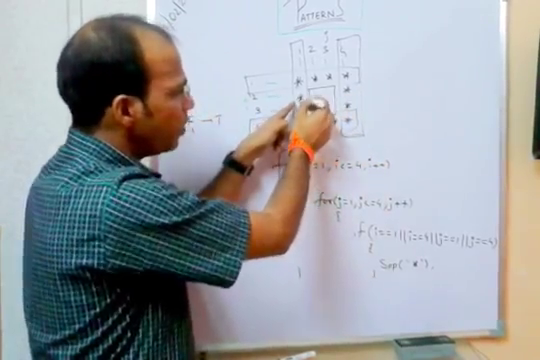 PATTERNS
j
1 2 3 4
* * * *
*
*
*
2
3
→ T
=1, i<=4, i++)
for(j=1, j<=4, j++)
{
if(i==1||i==4||j==1||j==4)
{
Sop("*").